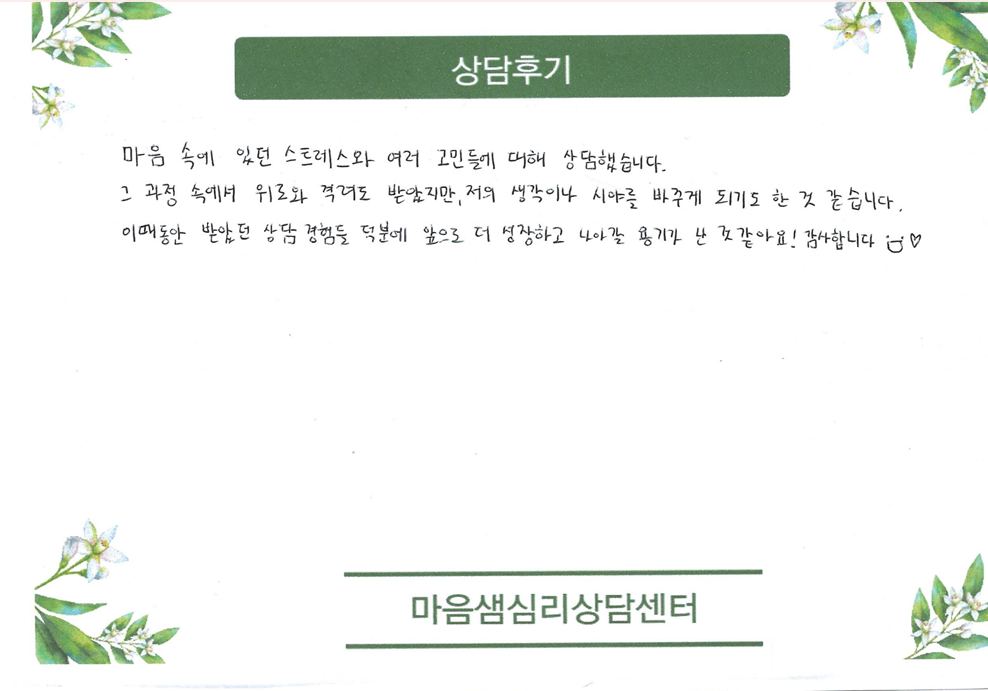 상담후기
마음 속에 있던 스트레스와 여러 고민들에 대해 상담했습니다.
그 과정 속에서 위로와 격려도 받았지만, 저의 생각이나 시야를 바꾸게 되기도 한 것 같습니다.
이때동안 받았던 상담 경험들 덕분에 앞으로 더 성장하고 나아갈 용기가 난 것 같아요! 감사합니다 ♡
마음샘심리상담센터